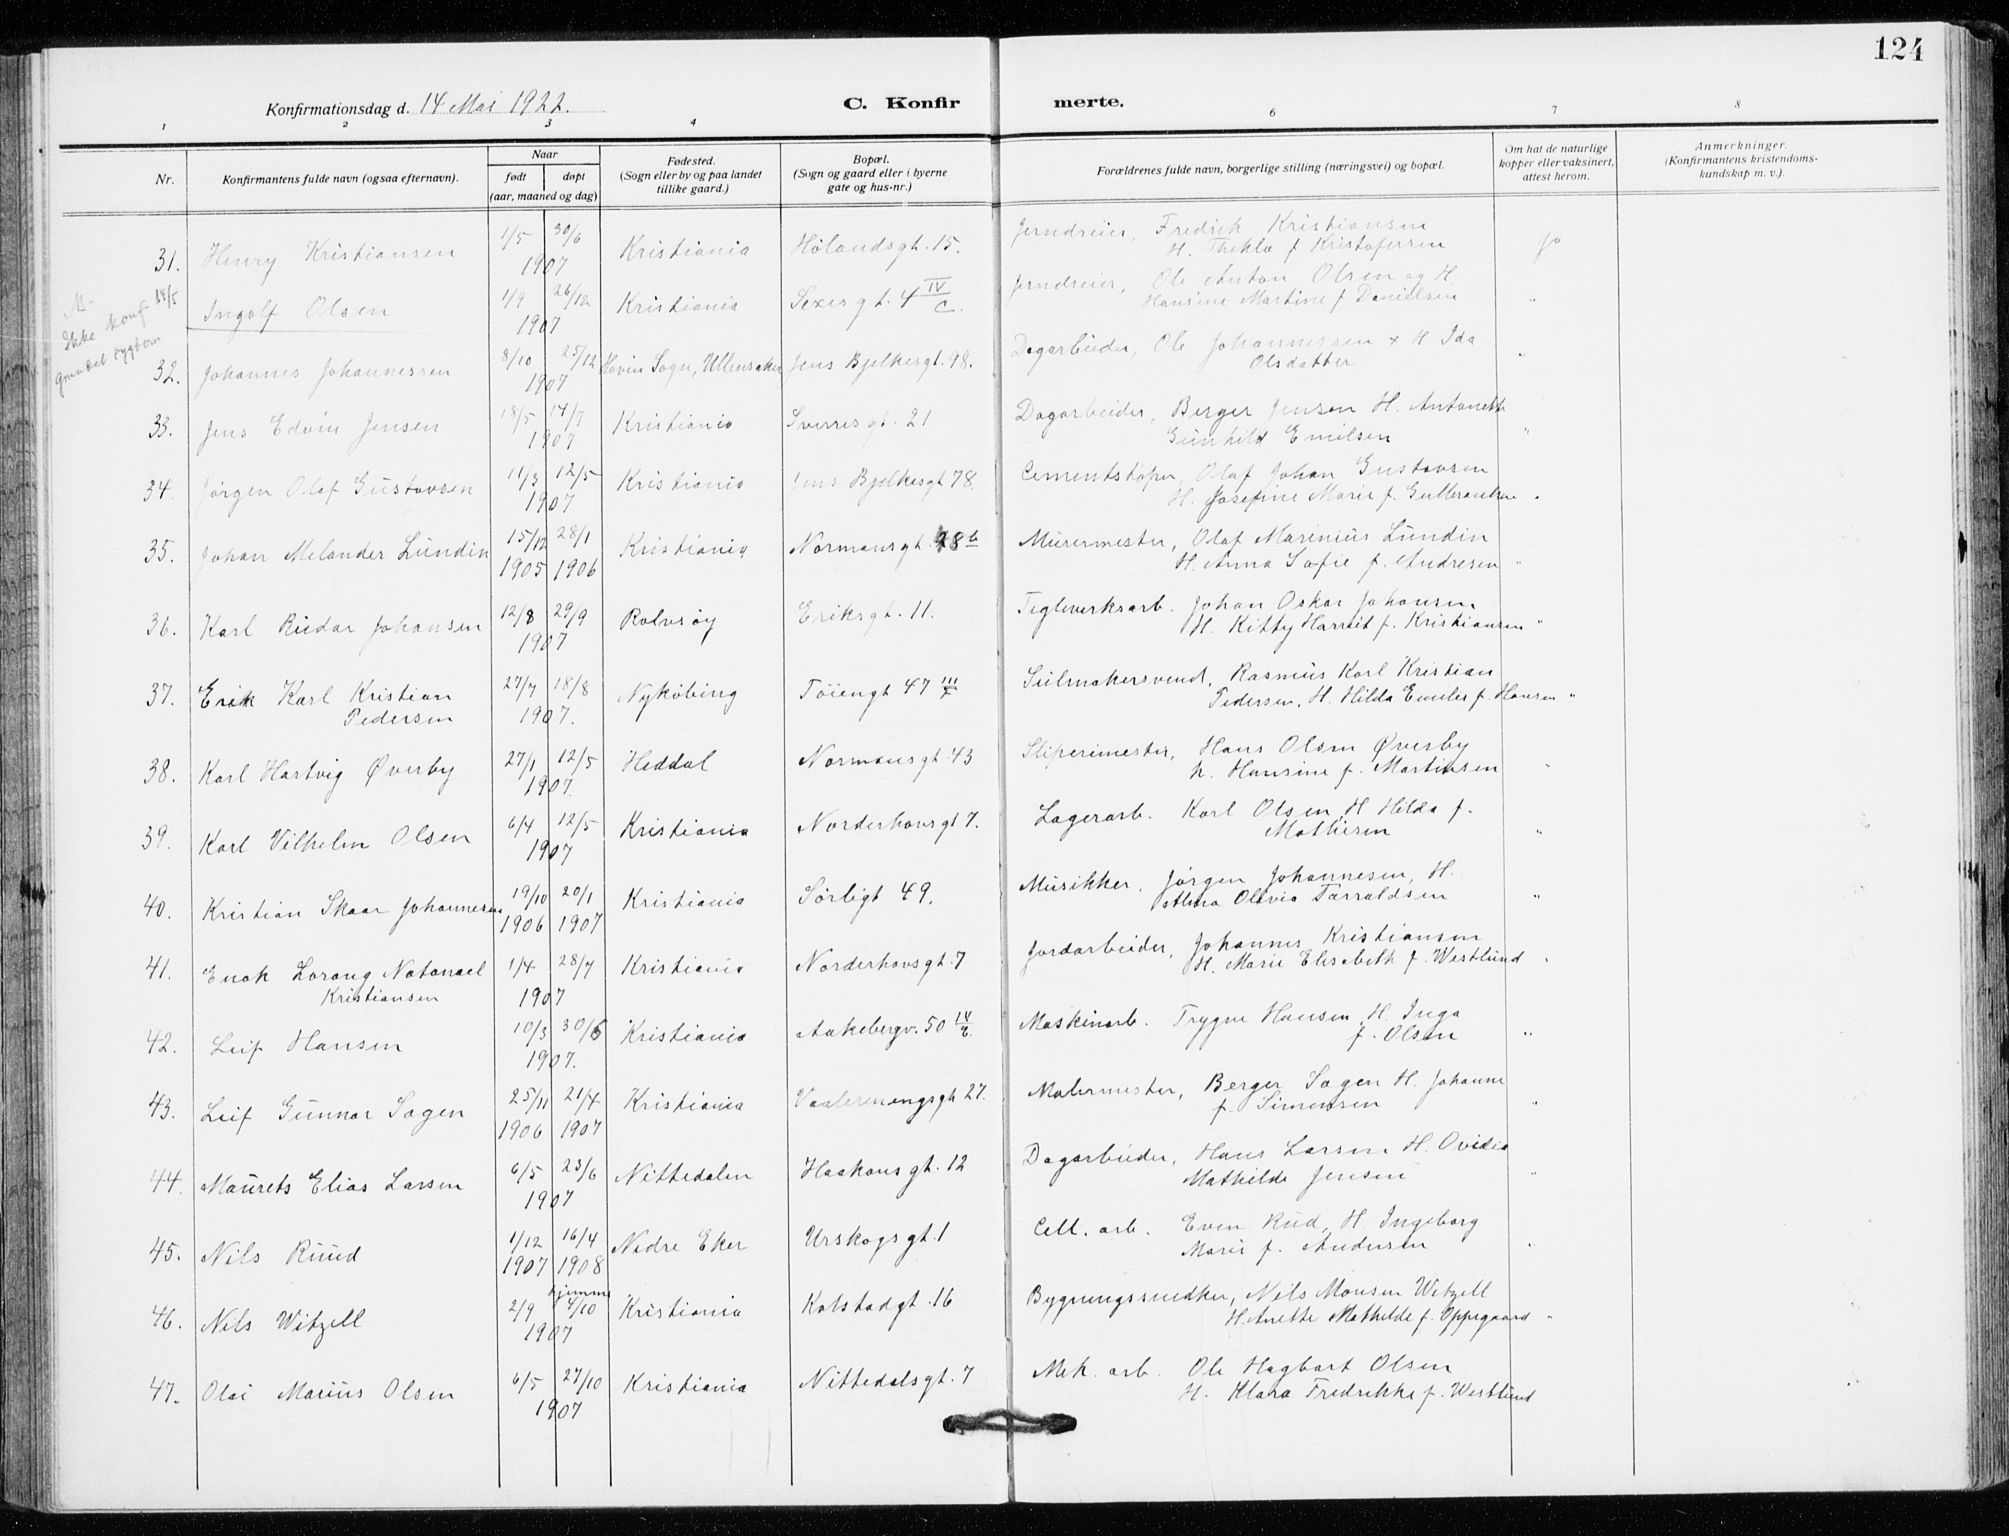 124
Konfirmationsdag d. 14 Mai 1922.
C. Konfir merte.
1 2 3 4 6 7 8
Nr.
Konfirmantens fulde navn (ogsaa efternavn).
Naar
født døpt
(aar, maaned og dag)
Fødested.
(Sogn eller by og paa landet
tillike gaard.)
Bopæl.
(Sogn og gaard eller i byerne
gate og hus-nr.)
Forældrenes fulde navn, borgerlige stilling (næringsvei) og bopæl.
Om hat de naturlige
kopper eller vaksinert,
attest herom.
Anmerkninger.
(Konfirmantens kristendoms-
kundskap m. v.).
31. Henry Kristiansen 1/5 30/6 Kristiania Hølandsgt. 15. Jerndreier, Fredrik Kristiansen ja
1907 H. Thekla f Kristofersen
Ikke konf. 14/5
sygdom
Ingolf Olsen 1/9 26/12 Kristiania Sexesgt. 4 IV/C. Jerndreier, Ole Anton Olsen og H
1907 Hansine Martine f Danielsen "
32. Johannes Johannessen 8/10 25/12 Hovin Sogn, Ullensaker Jens Bjelkesgt. 98. Dagarbeider, Ole Johannessen & H Ida
1907 Olsdatter "
33. Jens Edvin Jensen 18/5 14/7 Kristiania Sverresgt. 21 Dagarbeider, Berger Jensen H. Antonette
1907 Gunhild Emilsen "
34. Jørgen Olaf Gustavsen 11/3 12/5 Kristiania Jens Bjelkesgt 78. Cementstøper, Olaf Johan Gustavsen
1907 H. Josefine Marie f. Gulbrandsen "
35. Johan Melander Lundin 15/12 28/1 Kristiania Normansgt. 48 b Murermester, Olaf Marinius Lundin
1905 1906 H. Anna Sofie f. Andresen "
36. Karl Rudar Johansen 12/8 29/9 Rolvsøy Eriksgt. 11. Teglverksarb. Johan Oskar Johansen
1907 H. Kitty Harriet f. Kristiansen "
37. Erik Karl Kristian 27/7 18/8 Nykøbing Tøiengt 47 III Seilmakersvend, Rasmus Karl Kristian
Pedersen 1907. Pedersen, H. Hilda Emilie f Hansen "
38. Karl Hartvig Øverby 27/1 12/5 Heddal Normansgt. 43 Sliperimester, Hans Olsen Øverby
1907. h. Hansine f. Martinsen "
39. Karl Vilhelm Olsen 6/4 12/5 Kristiania Norderhovsgt 7. Lagerarb. Karl Olsen, H Hilda f.
1907 Mathisen "
40. Kristian Skaar Johannesen 19/10 20/1 Kristiania Sørligt 49. Musikker, Jørgen Johannesen, H.
1906 1907 Olivia Tarraldsen "
41. Enok Lorang Natanael 1/4 28/7 Kristiania Norderhovsgt. 7 Jordarbeider, Johannes Kristiansen
Kristiansen 1907 H. Marie Elisabeth f. Westlund "
42. Leif Hansen 10/3 30/6 Kristiania Aakebergv. 50 IV Maskinarb. Trygve Hansen, H. Inga
1907. f. Olsen "
43. Leif Gunnar Sagen 25/11 21/4 Kristiania Vaalerenengsgt 27. Malermester, Berger Sagen H. Johanne
1906 1907 f. Simensen "
44. Maurets Elias Larsen 6/5 23/6 Nittedalen Haakonsgt. 12 Dagarbeider, Hans Larsen H. Ovidia
1907 Mathilde Jensen "
45. Nils Ruud 1/12 16/4 Nedre Eker Urskogsgt. 1 Cell. arb. Even Rud, H. Ingeborg
1907 1908 Marie f. Andersen "
46. Nils Witzell 2/9 hjemme 4/10 Kristiania Kolstadgt. 16 Bygningssnedker, Nils Monsen Witzell
1907 H. Anette Mathilde f. Oppegaard "
47. Olai Marius Olsen 6/5 27/10 Kristiania Nittedalsgt. 7 Mek. arb. Ole Hagbart Olsen
1907 H. Klara Fredrikke f. Westlund